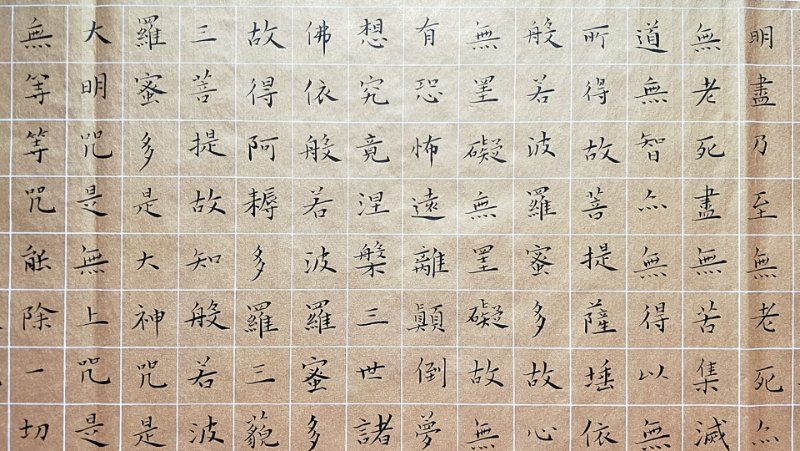 明盡乃至無老死亦
無老死盡無苦集滅
道無智亦無得以無
所得故菩提薩埵依
般若波羅蜜多故心
無罣礙無罣礙故無
有恐怖遠離顛倒夢
想究竟涅槃三世諸
佛依般若波羅蜜多
故得阿耨多羅三藐
三菩提故知般若波
羅蜜多是大神咒是
大明咒是無上咒是
無等等咒能除一切